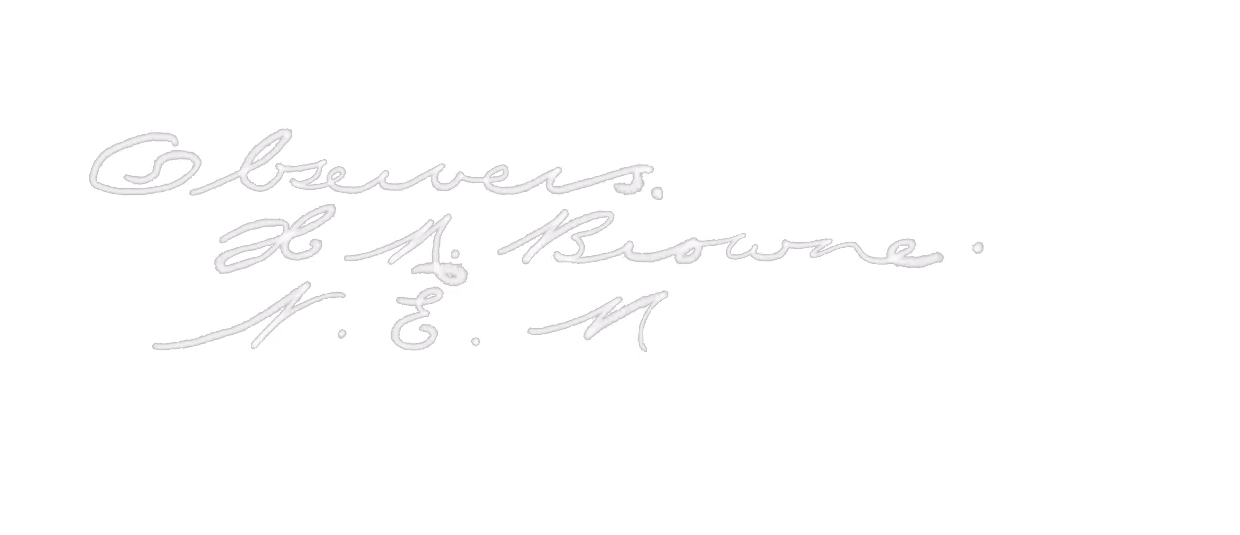 Observers.
H. A. Browne.
N. E. M